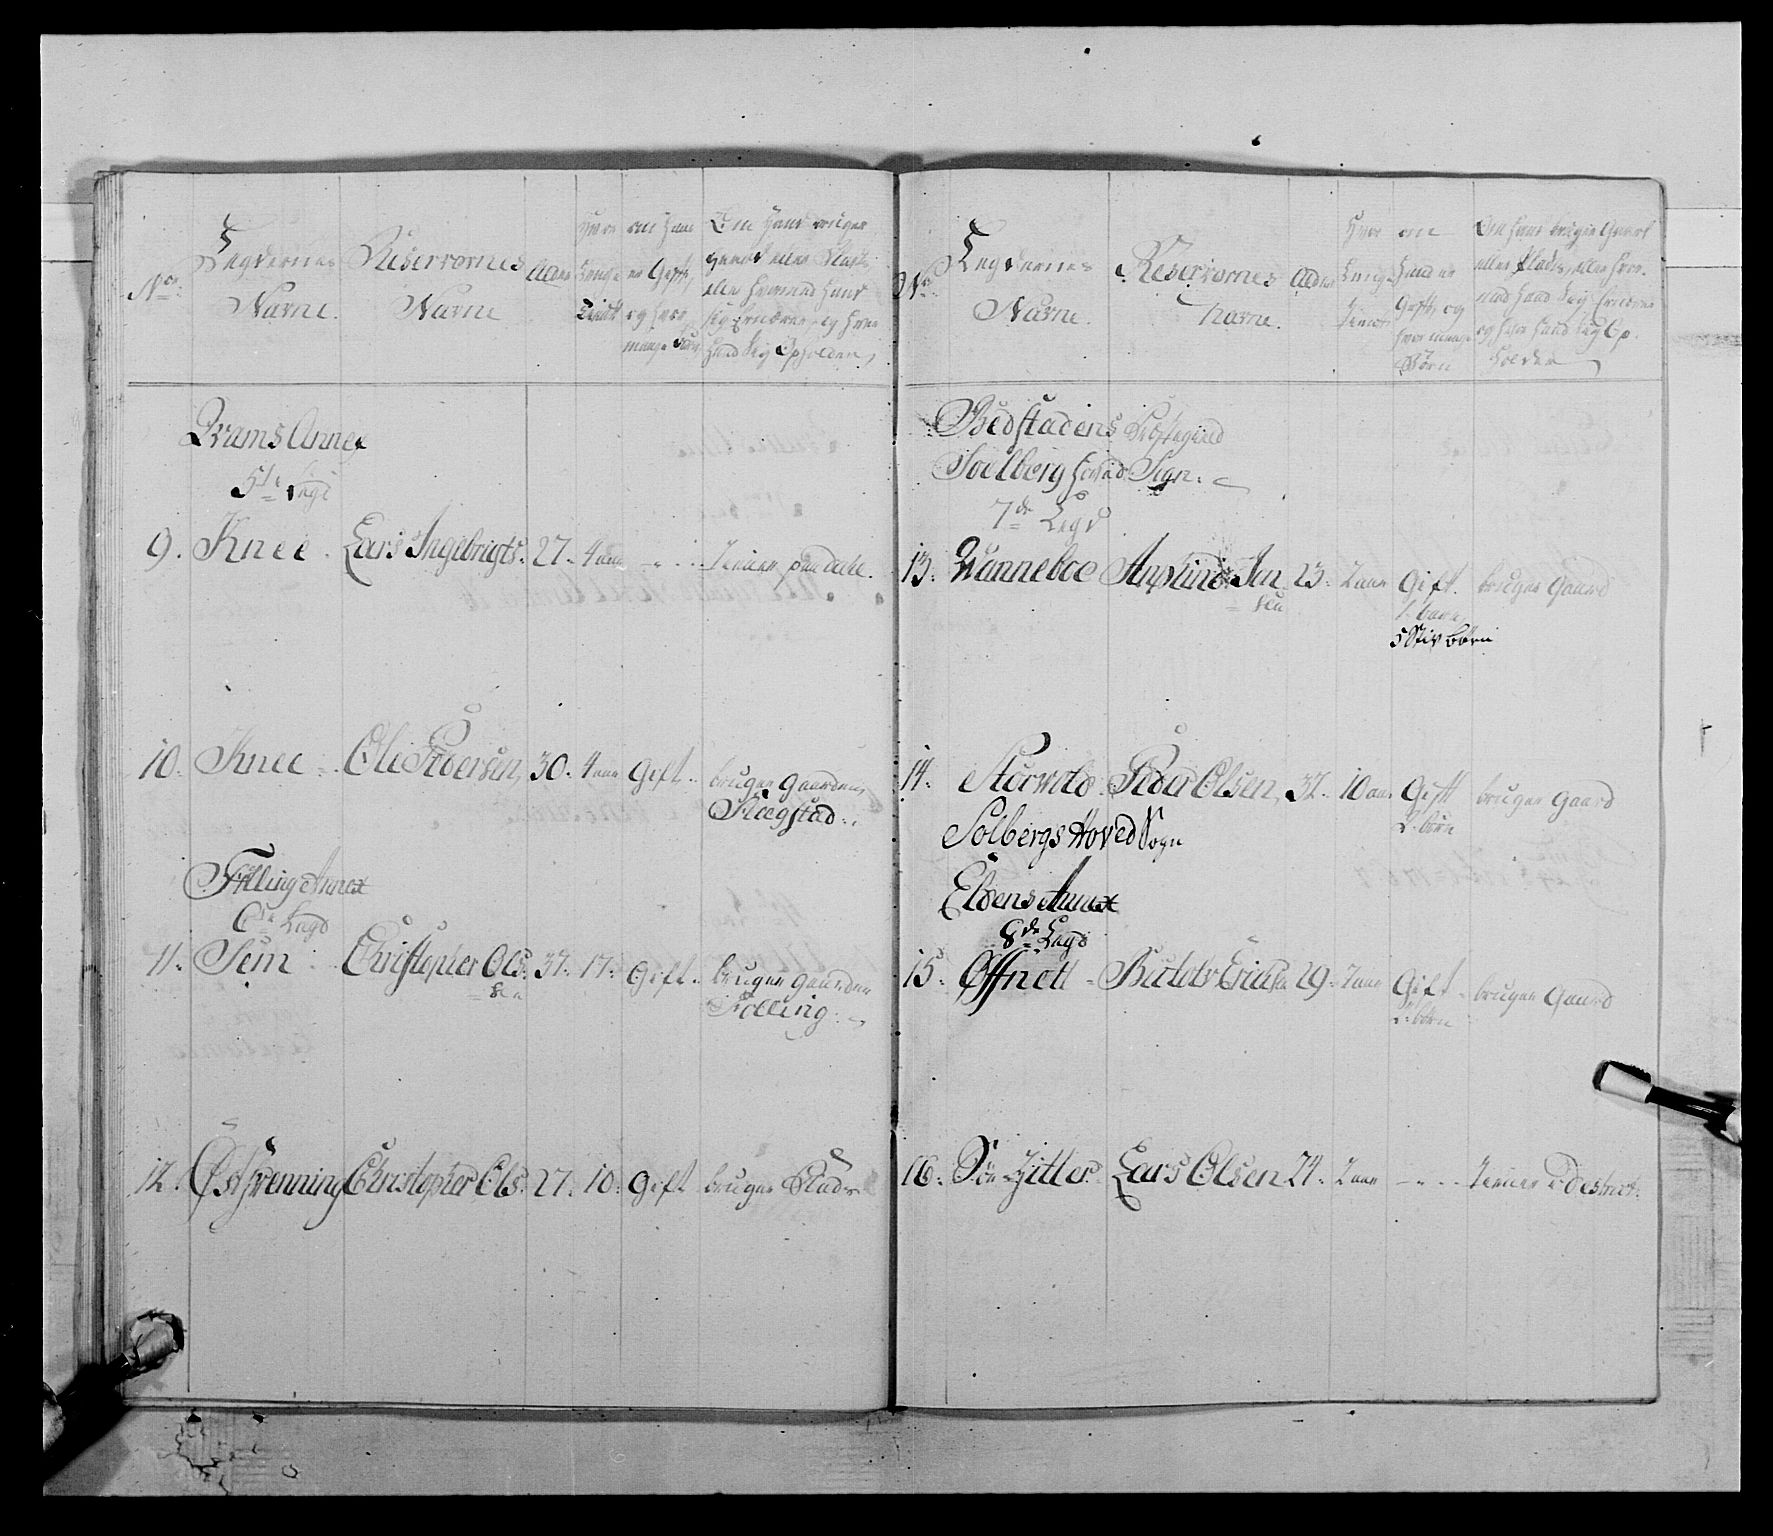 No.
Legdernes
Navne.
Reservernes
Navne
Alder
Hvor
Længe
Tient
om Hand
er Gift,
og hvor
mange Børn
Om Hand bruger
Gaard eller Plads
eller hvormed Hand
sig ernærer, og hvor
Hand sig Opholder,
Qvams Annex
5te Legd
9. Knee. Lars Ingebrigts. 27. 4 aar - Tiener paa dele.
10. Knee - Ole Pedersen, 30. 4 aar Gift. bruger Gaarden
Schegstad.
Følling Annex
6te Legd
11. Sem Christopher Ols. 37. 17. Gift. bruger Gaarden
sen
Følling.
12. Østvenning Christopher Ols. 27. 10. Gift bruger Plads
No.
Legdernes
Navne.
Reservernes
Navne.
Alder
Hvor
Længe
Tient
om
Hand er
Gift, og
hvor mange
Børn
Om Hand bruger Gaard
eller Plads, eller hvor-
med Hand sig ernærer
og hvor Hand sig Op-
holder
Bedstadens Præstegield
Soelberg Hoved Sogn.
7de Legd
13. Wanneboe Jon 23. 2 aar Gift. bruger Gaard
sen
1 barn
5 Stiv børn
14. Storwold Peder Olsen, 32. 10 aar Gift bruger Gaard
2. børn
Solbergs Hoved Sogn
Eldens Annex
8de Legd
15. Øffnett - Erichs 29. 2 aar Gift - bruger Gaard
2. børn
16. Lars Olsen 24. 2 aar - Tiener i Destrict.